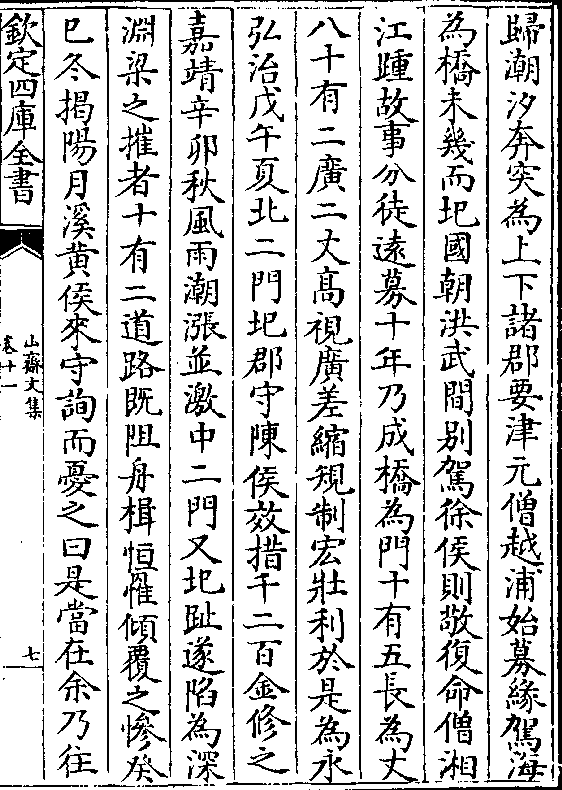 歸潮汐奔突為上下諸郡要津元僧越浦始募緣駕海
為橋未幾而圮國朝洪武間别駕徐侯則敬復命僧湘
江踵故事分徒逺募十年乃成橋為門十有五長為丈
八十有二廣二丈髙視廣差縮規制宏壯利於是為永
弘治戊午夏北二門圮郡守陳侯效措千二百金修之
嘉靖辛卯秋風雨潮漲並激中二門又圮趾遂陷為深
淵梁之摧者十有二道路既阻舟楫恒罹傾覆之慘癸
巳冬揭陽月溪黄侯來守詢而憂之曰是當在余乃往
欽定四庫全書
山齋文集
卷十一
七